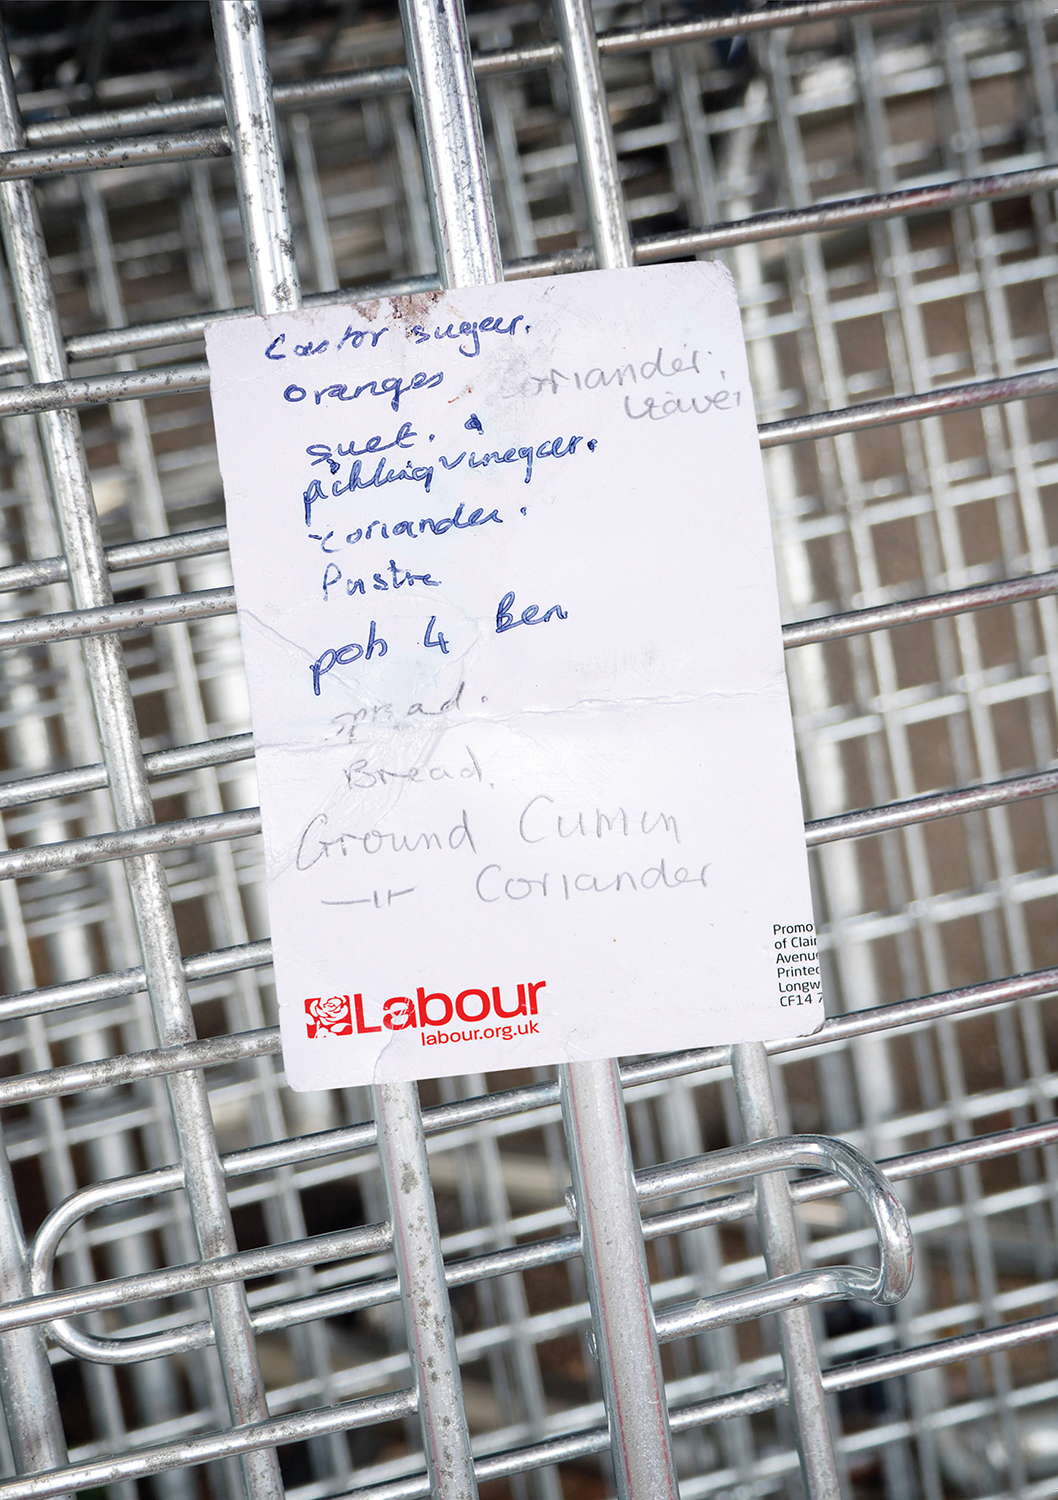 Castor sugar.
oranges
coriander.
leaves
suet.
pickling vinegar.
coriander.
Paste
pots 4 Ben
spread.
Bread.
Ground Cumin
—11— Coriander
Labour
labour.org.uk
Promo
of Clair
Avenue
Printed
Longw
CF14 7